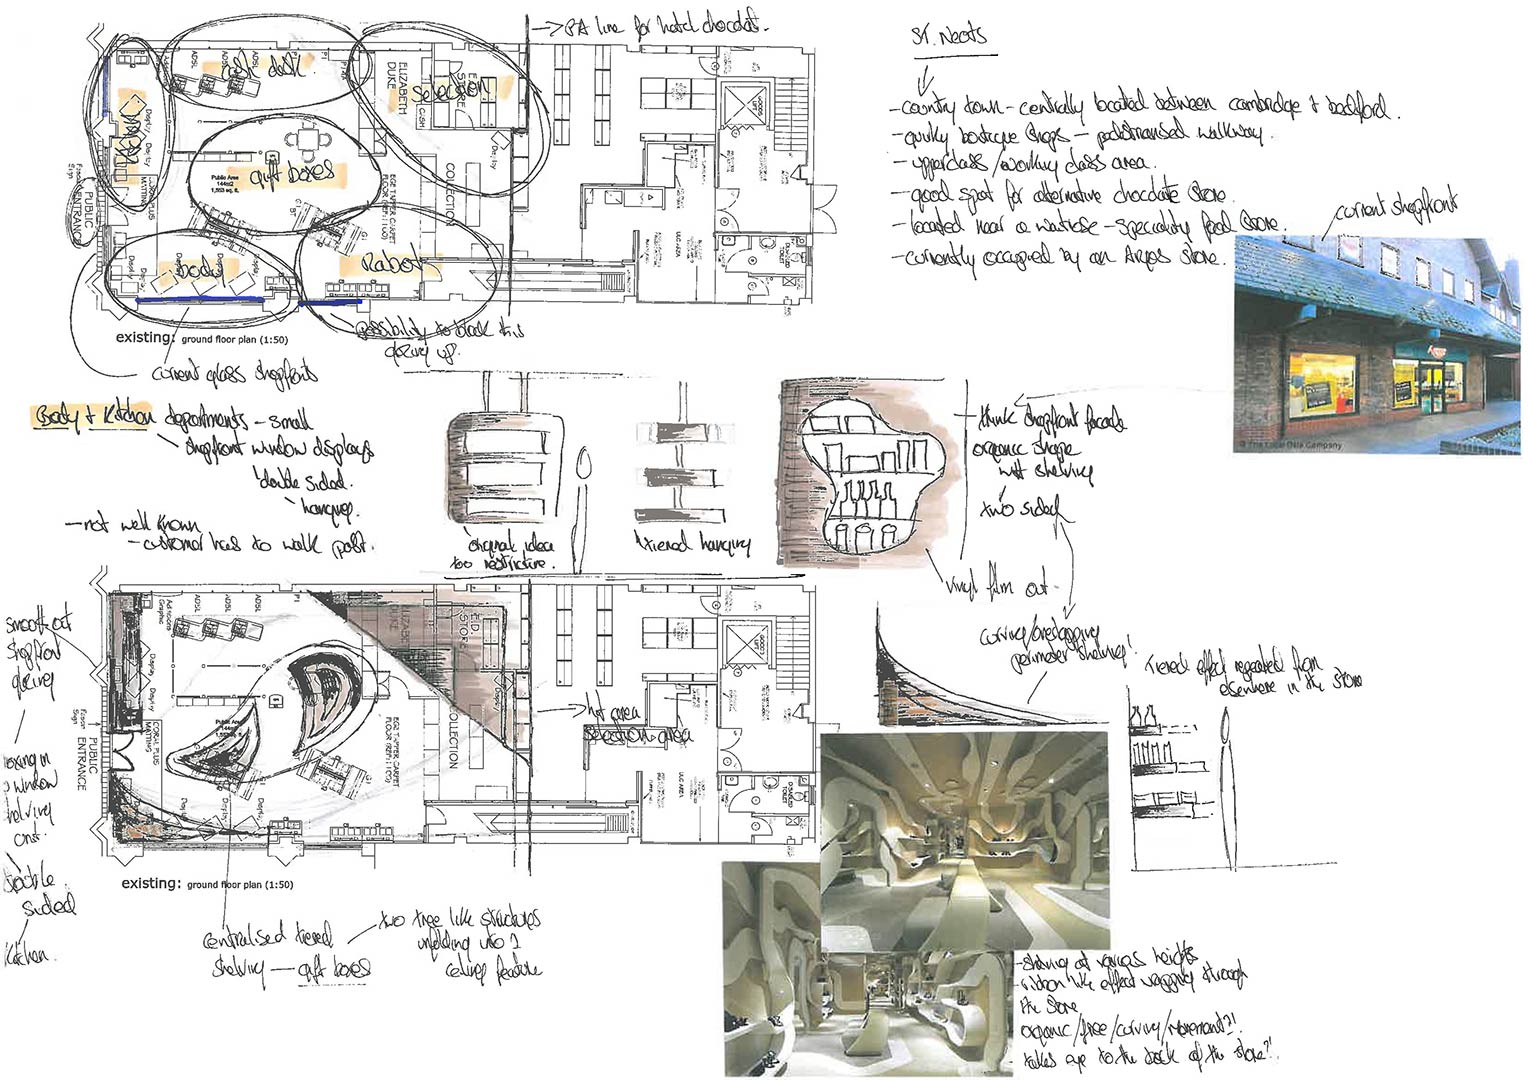 → BA line for hotel chocolat.
cash desk.
selection
gift boxes
body
Rabot
ADSL
ADSL
ADSL
ELIZABETH DUKE
Display
Display
Public Area
144m2
1,553 sq. ft.
COLLECTION
PUBLIC ENTRANCE
GOODS LIFT
ULC AREA
DISABLED TOILET
existing: ground floor plan (1:50)
possibility to block this
glazing up.
current glass shopfronts
St. Neots
- country town - centrally located between cambridge + bedford.
- quirky boutique shops - pedestrianised walkway.
- upperclass/working class area.
- good spot for alternative chocolate store.
- located near a waitrose - speciality food store.
- currently occupied by an Argos store.
current shopfront
© The Local Data Company
Body + Kitchen departments - small
shopfront window displays
double sided.
hanging.
- not well known
- customer has to walk past.
original idea
too restrictive.
tiered hanging
- think shopfront facade
organic shape
with shelving
two sided
vinyl film out.
curving/overlapping
perimeter shelving!
Tiered effect repeated from
elsewhere in the store
smooth out
shopfront
glazing
boxing in
window
shelving
const.
double
sided
kitchen.
ADSL
ADSL
ADSL
Display
Display
ELIZABETH DUKE
COLLECTION
Public Area
PUBLIC ENTRANCE
GOODS LIFT
ULC AREA
DISABLED TOILET
→ hot area
selection area
existing: ground floor plan (1:50)
centralised tiered
shelving — gift boxes
two tree like structures
unfolding into 1
ceiling feature
- shelving at various heights
- ribbon like effect wrapping through
the store
organic/free/curving/movement?!
- takes eye to the back of the store?!